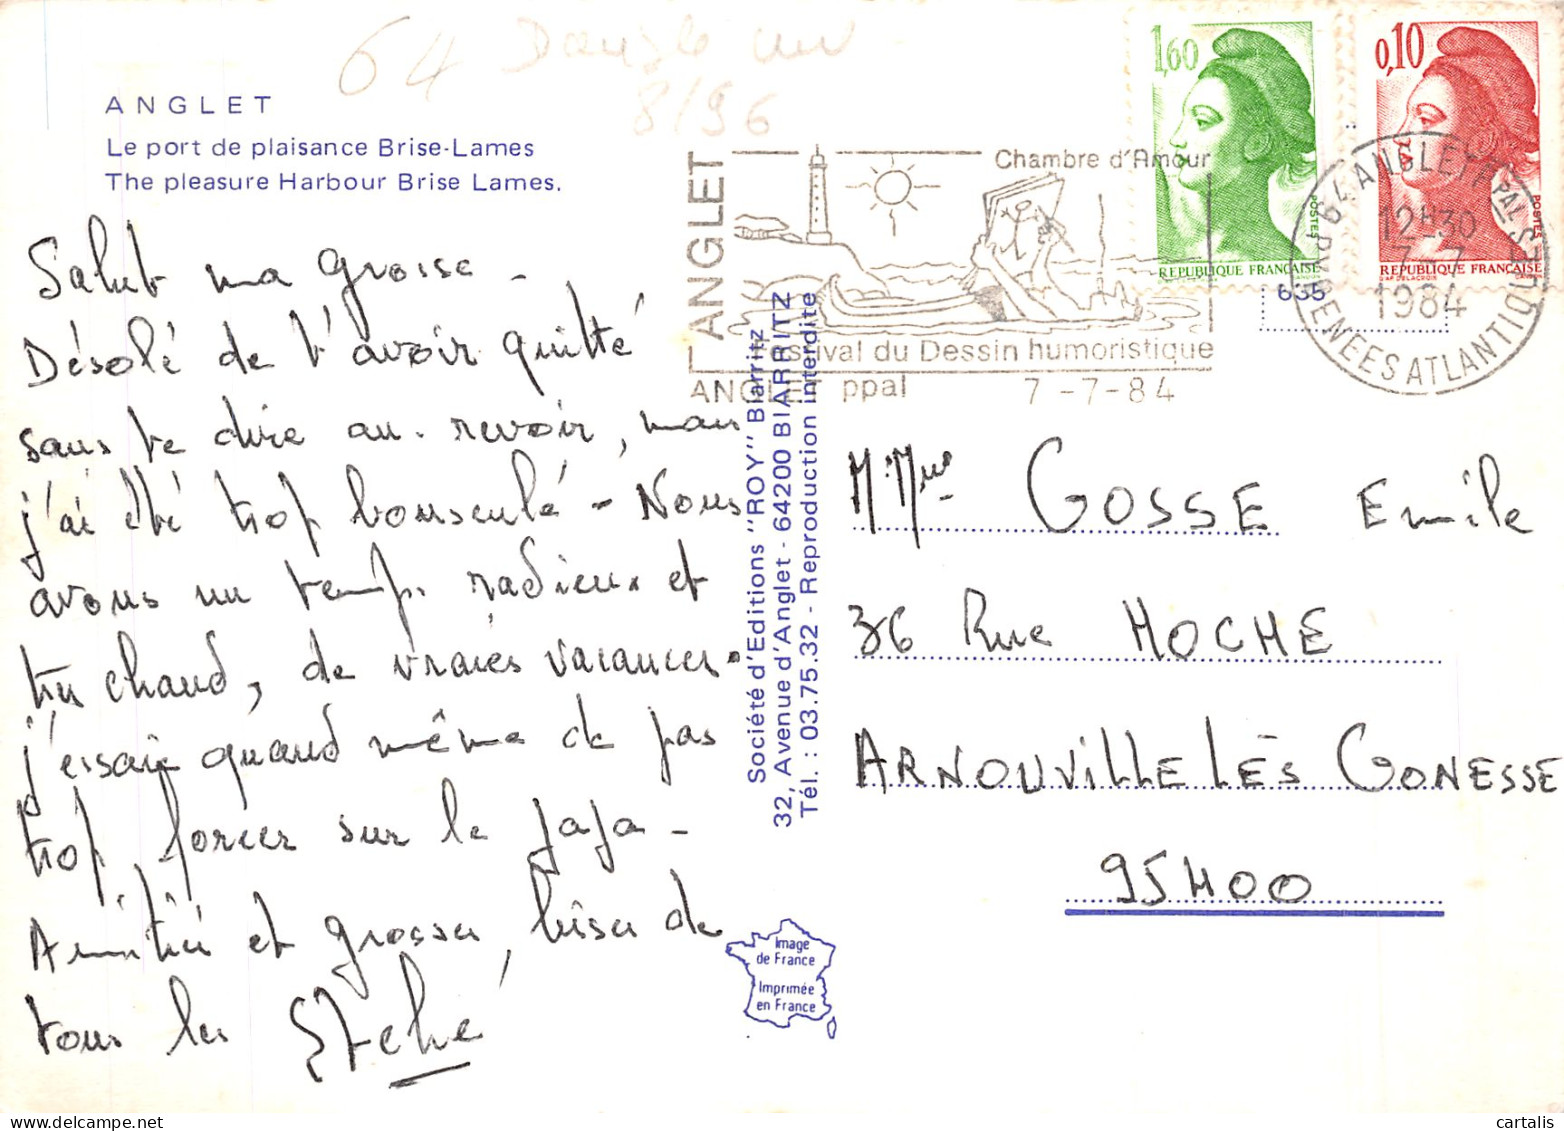 64 Dans le
8/96
ANGLET
Le port de plaisance Brise-Lames
The pleasure Harbour Brise Lames.
Salut ma grosse -
Désolé de t'avoir quitté
sans te dire au. revoir, mais
j'ai été trop bousculé - Nous
avons un temps radieux et
très chaud, de vraies vacances.
j'essaie quand même de pas
trop forcer sur le jaja -
Amitié et grosses bises de
tous les
1,60
REPUBLIQUE FRANÇAISE
POSTES
0,10
REPUBLIQUE FRANÇAISE
POSTES
ANGLET
Chambre d'Amour
Festival du Dessin humoristique
ANGLET ppal 7-7-84
64 ANGLET PPAL
12H30
7-7
1984
PYRENEES ATLANTIQUES
635
Société d'Editions "ROY" Biarritz
32, Avenue d'Anglet - 64200 BIARRITZ
Tél. : 03.75.32 - Reproduction interdite
M. Mme GOSSE Emile
36 Rue HOCHE
ARNOUVILLE LÈS GONESSE
95400
Image
de France
Imprimée
en France
cartalis